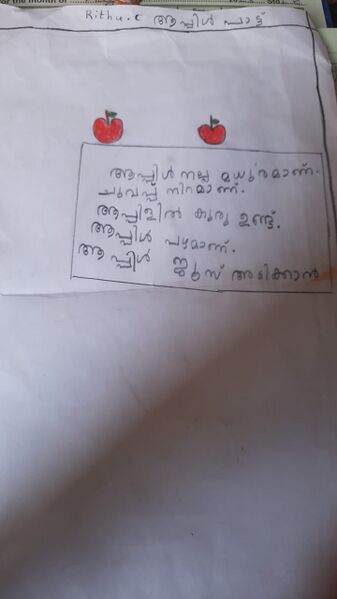 for the month of
Std
Rithu.c ആപ്പിൾ പാട്ട്
ആപ്പിൾ നല്ല മധുരമാണ്.
ചുവപ്പ് നിറമാണ്.
ആപ്പിളിൽ കുരു ഉണ്ട്.
ആപ്പിൾ പഴമാണ്.
ആപ്പിൾ ജ്യൂസ് അടിക്കാൻ